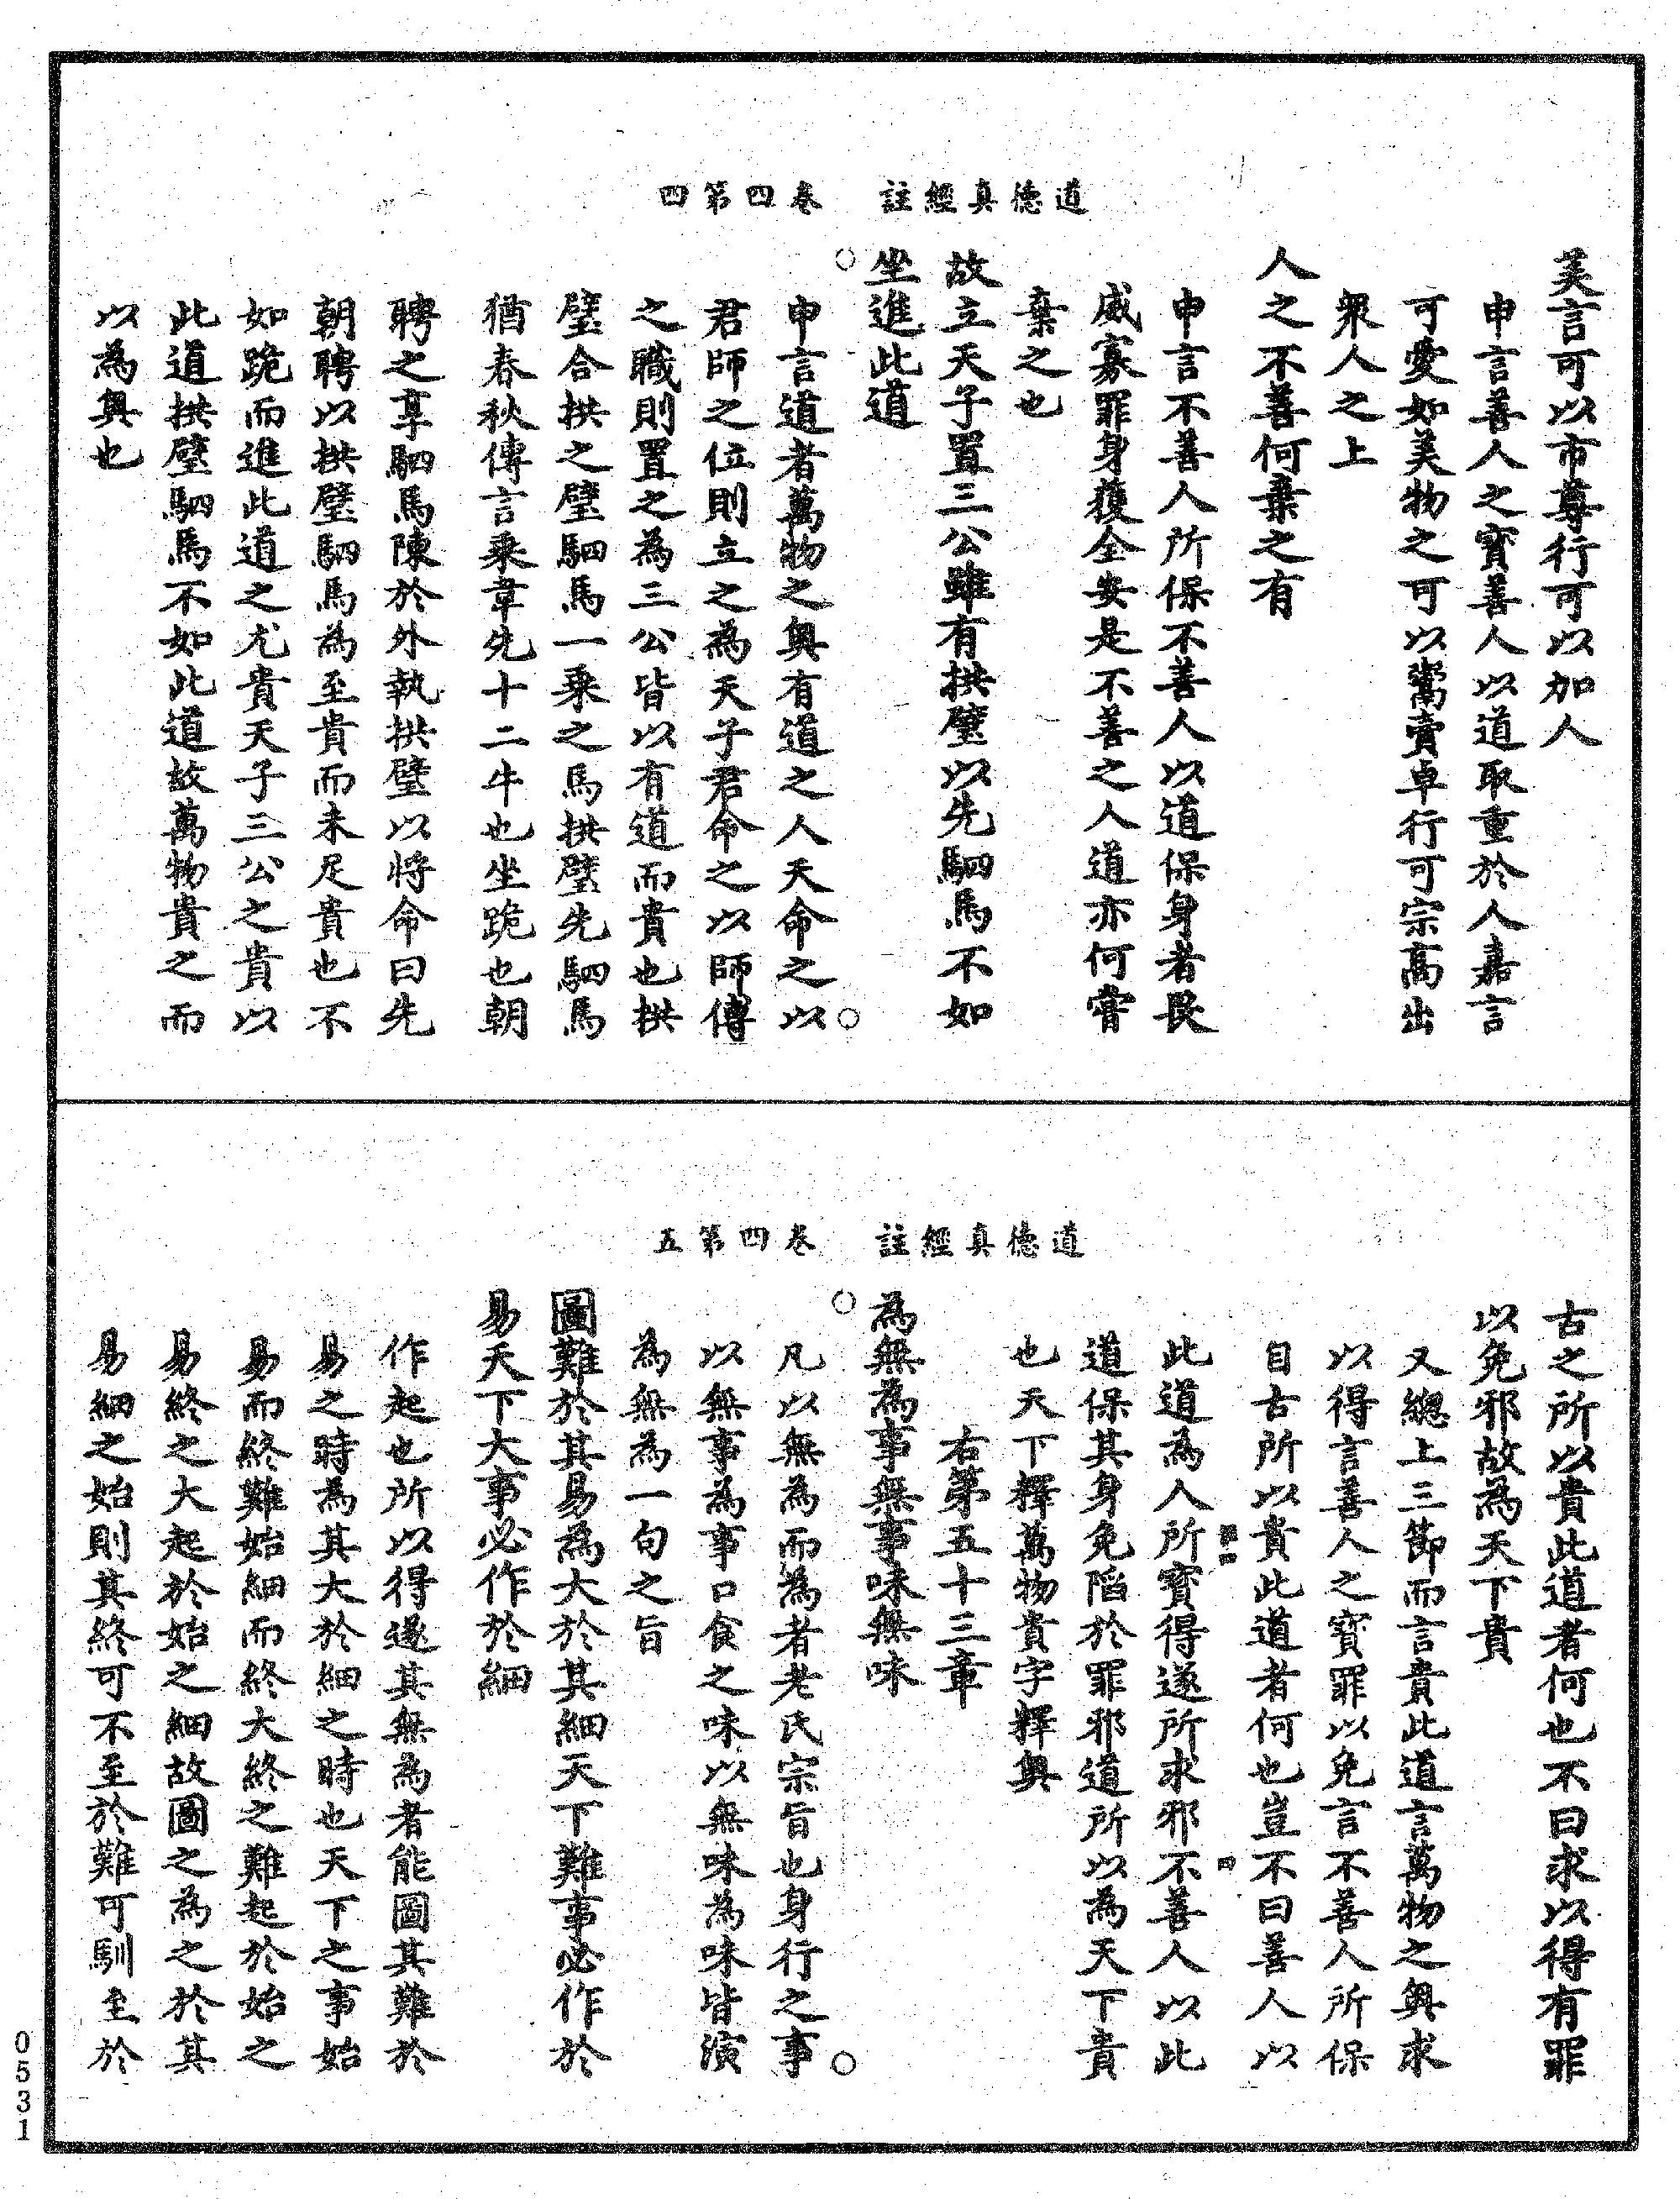 道德真經註　卷四第四
美言可以市尊行可以加人
申言善人之寳善人以道取重於人嘉言
可愛如美物之可以鬻賣卓行可宗高出
衆人之上
人之不善何棄之有
申言不善人所保不善人以道保身者畏
威寡罪身獲全安是不善之人道亦何嘗
棄之也
故立天子置三公雖有拱璧以先駟馬不如
坐進此道
申言道者萬物之奧有道之人天命之以
君師之位則立之為天子君命之以師傅
之職則置之為三公皆以有道而貴也拱
璧合拱之璧駟馬一乗之馬拱璧先駟馬
猶春秋傳言乗韋先十二牛也坐跪也朝
聘之享駟馬陳於外執拱璧以將命曰先
朝聘以拱璧駟馬為至貴而未足貴也不
如跪而進此道之尤貴天子三公之貴以
此道拱璧駟馬不如此道故萬物貴之而
以為奧也
道德真經註　卷四第五
古之所以貴此道者何也不曰求以得有罪
以免邪故為天下貴
又緫上三節而言貴此道言萬物之奧求
以得言善人之寳罪以免言不善人所保
自古所以貴此道者何也豈不曰善人以
此道為人所寳得遂所求邪不善人以此
道保其身免陷於罪邪道所以為天下貴
也天下釋萬物貴字釋奧
右第五十三章
為無為事無事味無味
凡以無為而為者老氏宗旨也身行之事
以無事為事口食之味以無味為味皆演
為無為一句之旨
圖難於其易為大於其細天下難事必作於
易天下大事必作於細
作起也所以得遂其無為者能圖其難於
易之時為其大於細之時也天下之事始
易而終難始細而終大終之難起於始之
易終之大起於始之細故圖之為之於其
易細之始則其終可不至於難可馴至於
0531